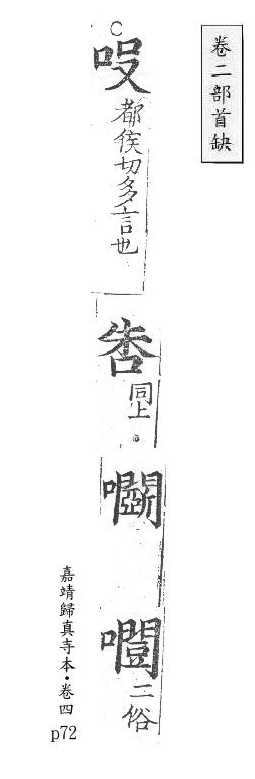 卷二部首缺
C
吺都侯切多言也
同上
二俗
嘉靖歸真寺本·卷四
p72